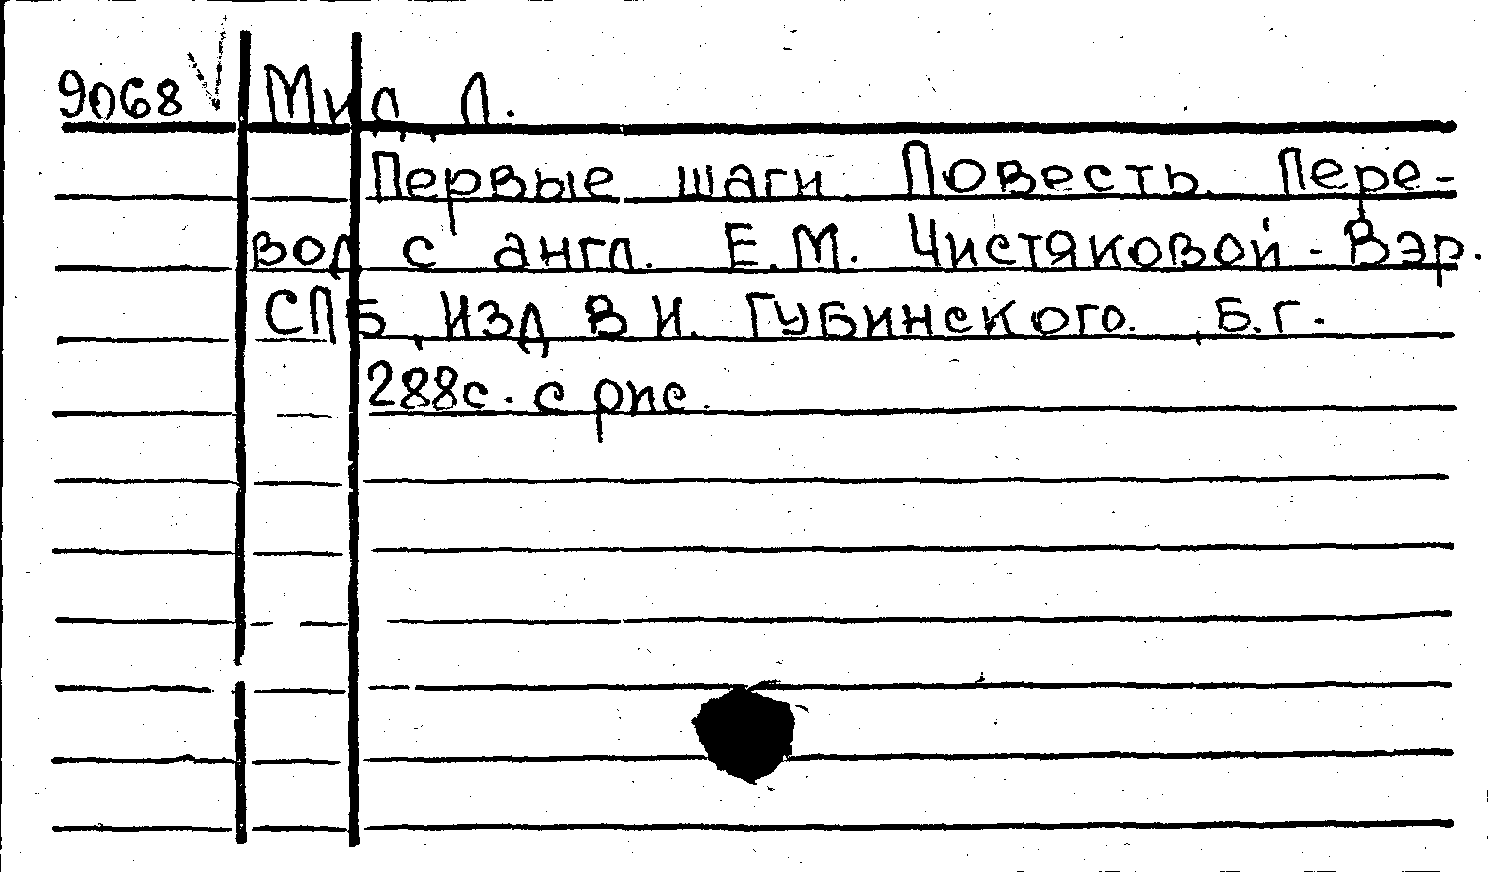 9068 Мид, Л.
Первые шаги. Повесть. Пере-
вод с англ. Е.М. Чистяковой - Вэр.
СПБ, ИЗД В И. Губинского. , Б.г.
288с. с рис.